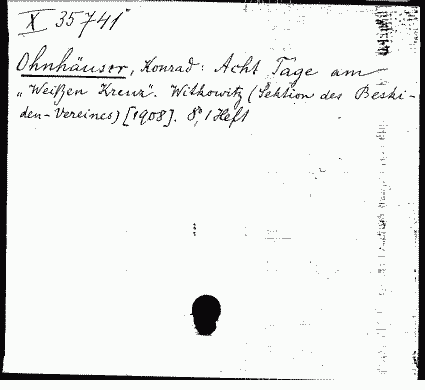 X 35741
Ohnhäuser, Konrad: Acht Tage am
„Weißen Kreuz". Witkowitz (Sektion des Beski-
den-Vereines) [1908]. 8°, 1 Heft